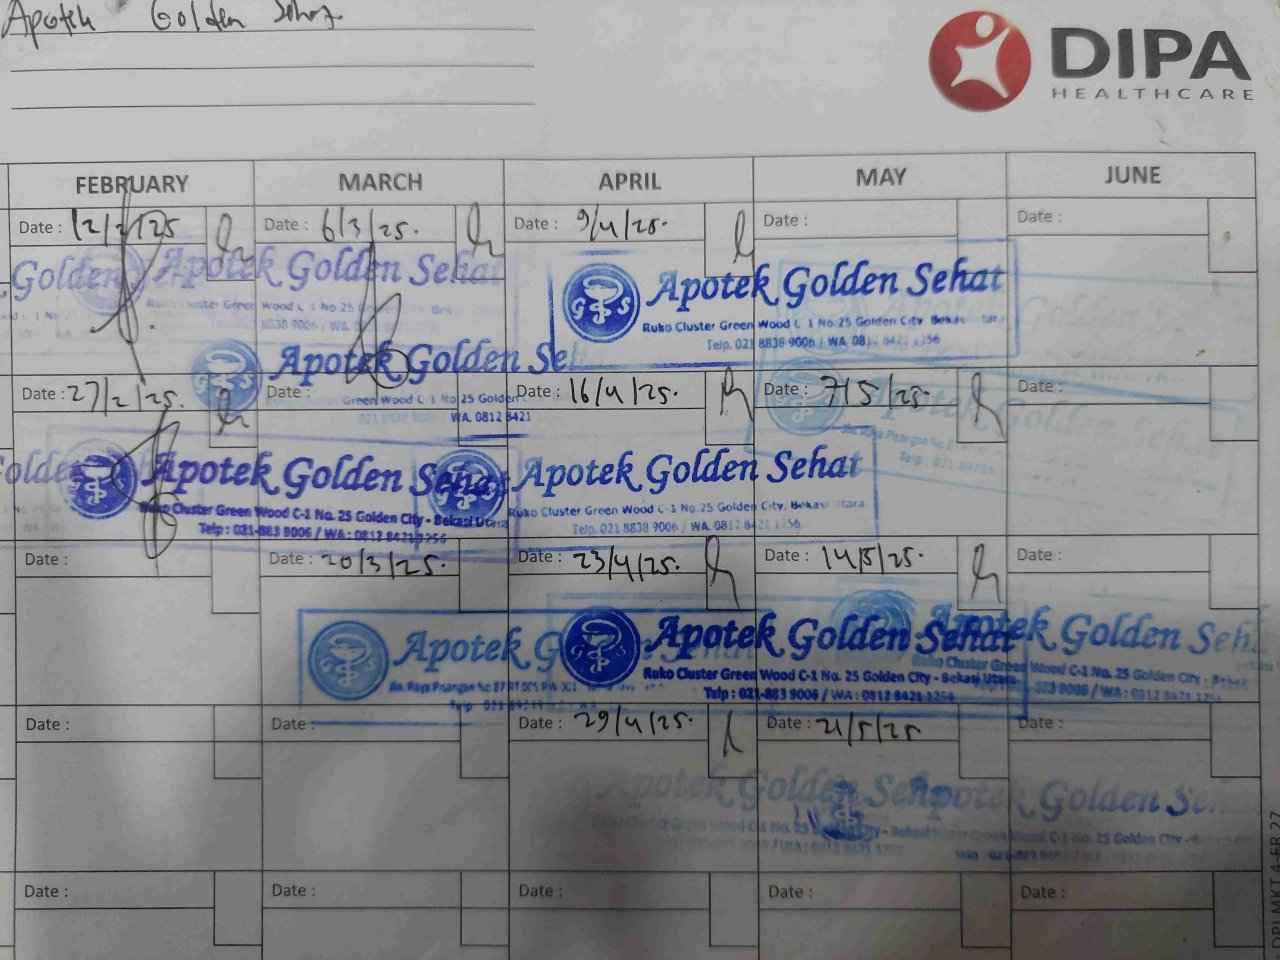 Apotek Golden Sehat
DIPA
HEALTHCARE
FEBRUARY MARCH APRIL MAY JUNE
Date : 12/2/25 Date : 6/3/25. Date : 9/4/25. Date : Date :
Golden Apotek Golden Sehat Apotek Golden Sehat
Ruko Cluster Green Wood C-1 No.25 Golden City Bekasi Utara
Telp. 021 8838 9006 / WA. 0812 8421 1256
Apotek Golden Se
Green Wood C-1 No 25 Golden
WA. 0812 8421
Date : 27/2/25. Date : Date : 16/4/25. Date : 7/5/25. Date :
Apotek Golden Sehat Apotek Golden Sehat
Ruko Cluster Green Wood C-1 No. 25 Golden City - Bekasi Utara Ruko Cluster Green Wood C-1 No.25 Golden City, Bekasi Utara
Telp : 021-883 9006 / WA : 0812 8421 1256 Telp. 021 8838 9006 / WA. 0812 8421 1256
Date : Date : 20/3/25. Date : 23/4/25. Date : 14/5/25. Date :
Apotek G Apotek Golden Sehat Apotek Golden Seh
Ruko Cluster Green Wood C-1 No. 25 Golden City - Bekasi Utara
Telp : 021-883 9006 / WA : 0812 8421 1256
Date : Date : Date : 29/4/25. Date : 21/5/25 Date :
Apotek Golden Seh Apotek Golden Se
Date : Date : Date : Date : Date :